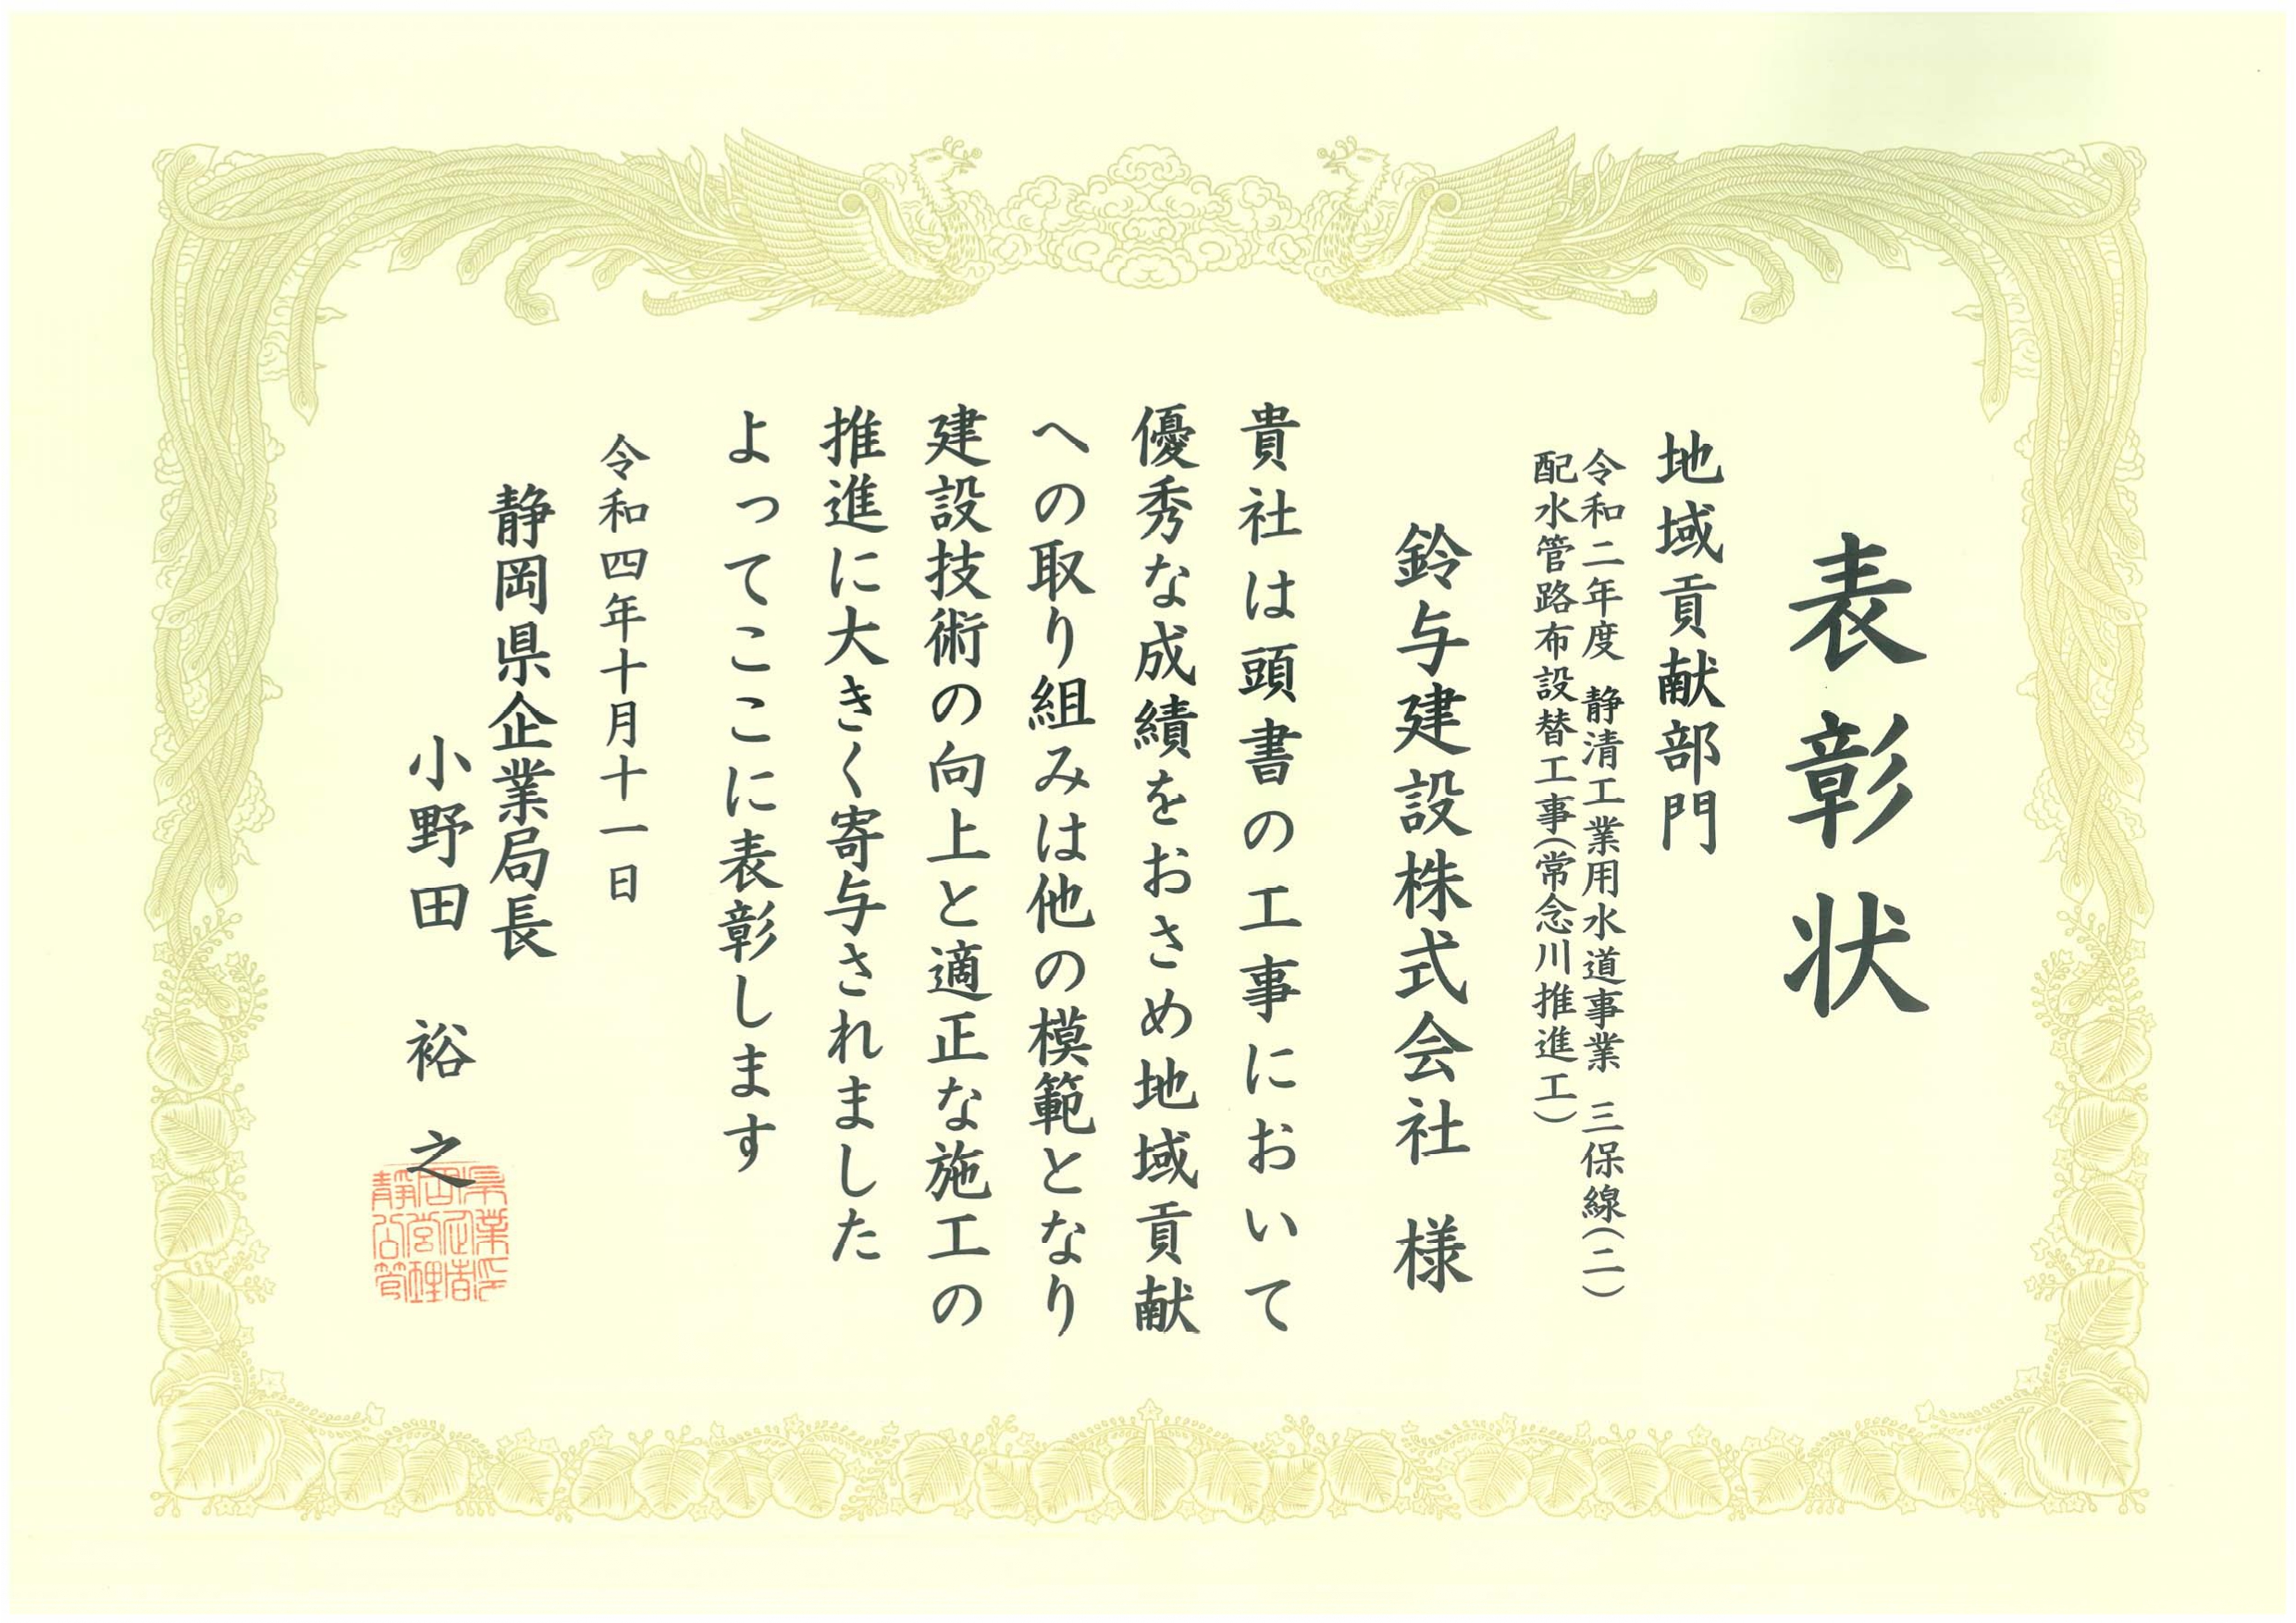 表彰状
地域貢献部門
令和二年度 静清工業用水道事業 三保線(二)
配水管路布設替工事(常念川推進工)
鈴与建設株式会社 様
貴社は頭書の工事において
優秀な成績をおさめ地域貢献
への取り組みは他の模範となり
建設技術の向上と適正な施工の
推進に大きく寄与されました
よってここに表彰します
令和四年十月十一日
静岡県企業局長
小野田 裕之